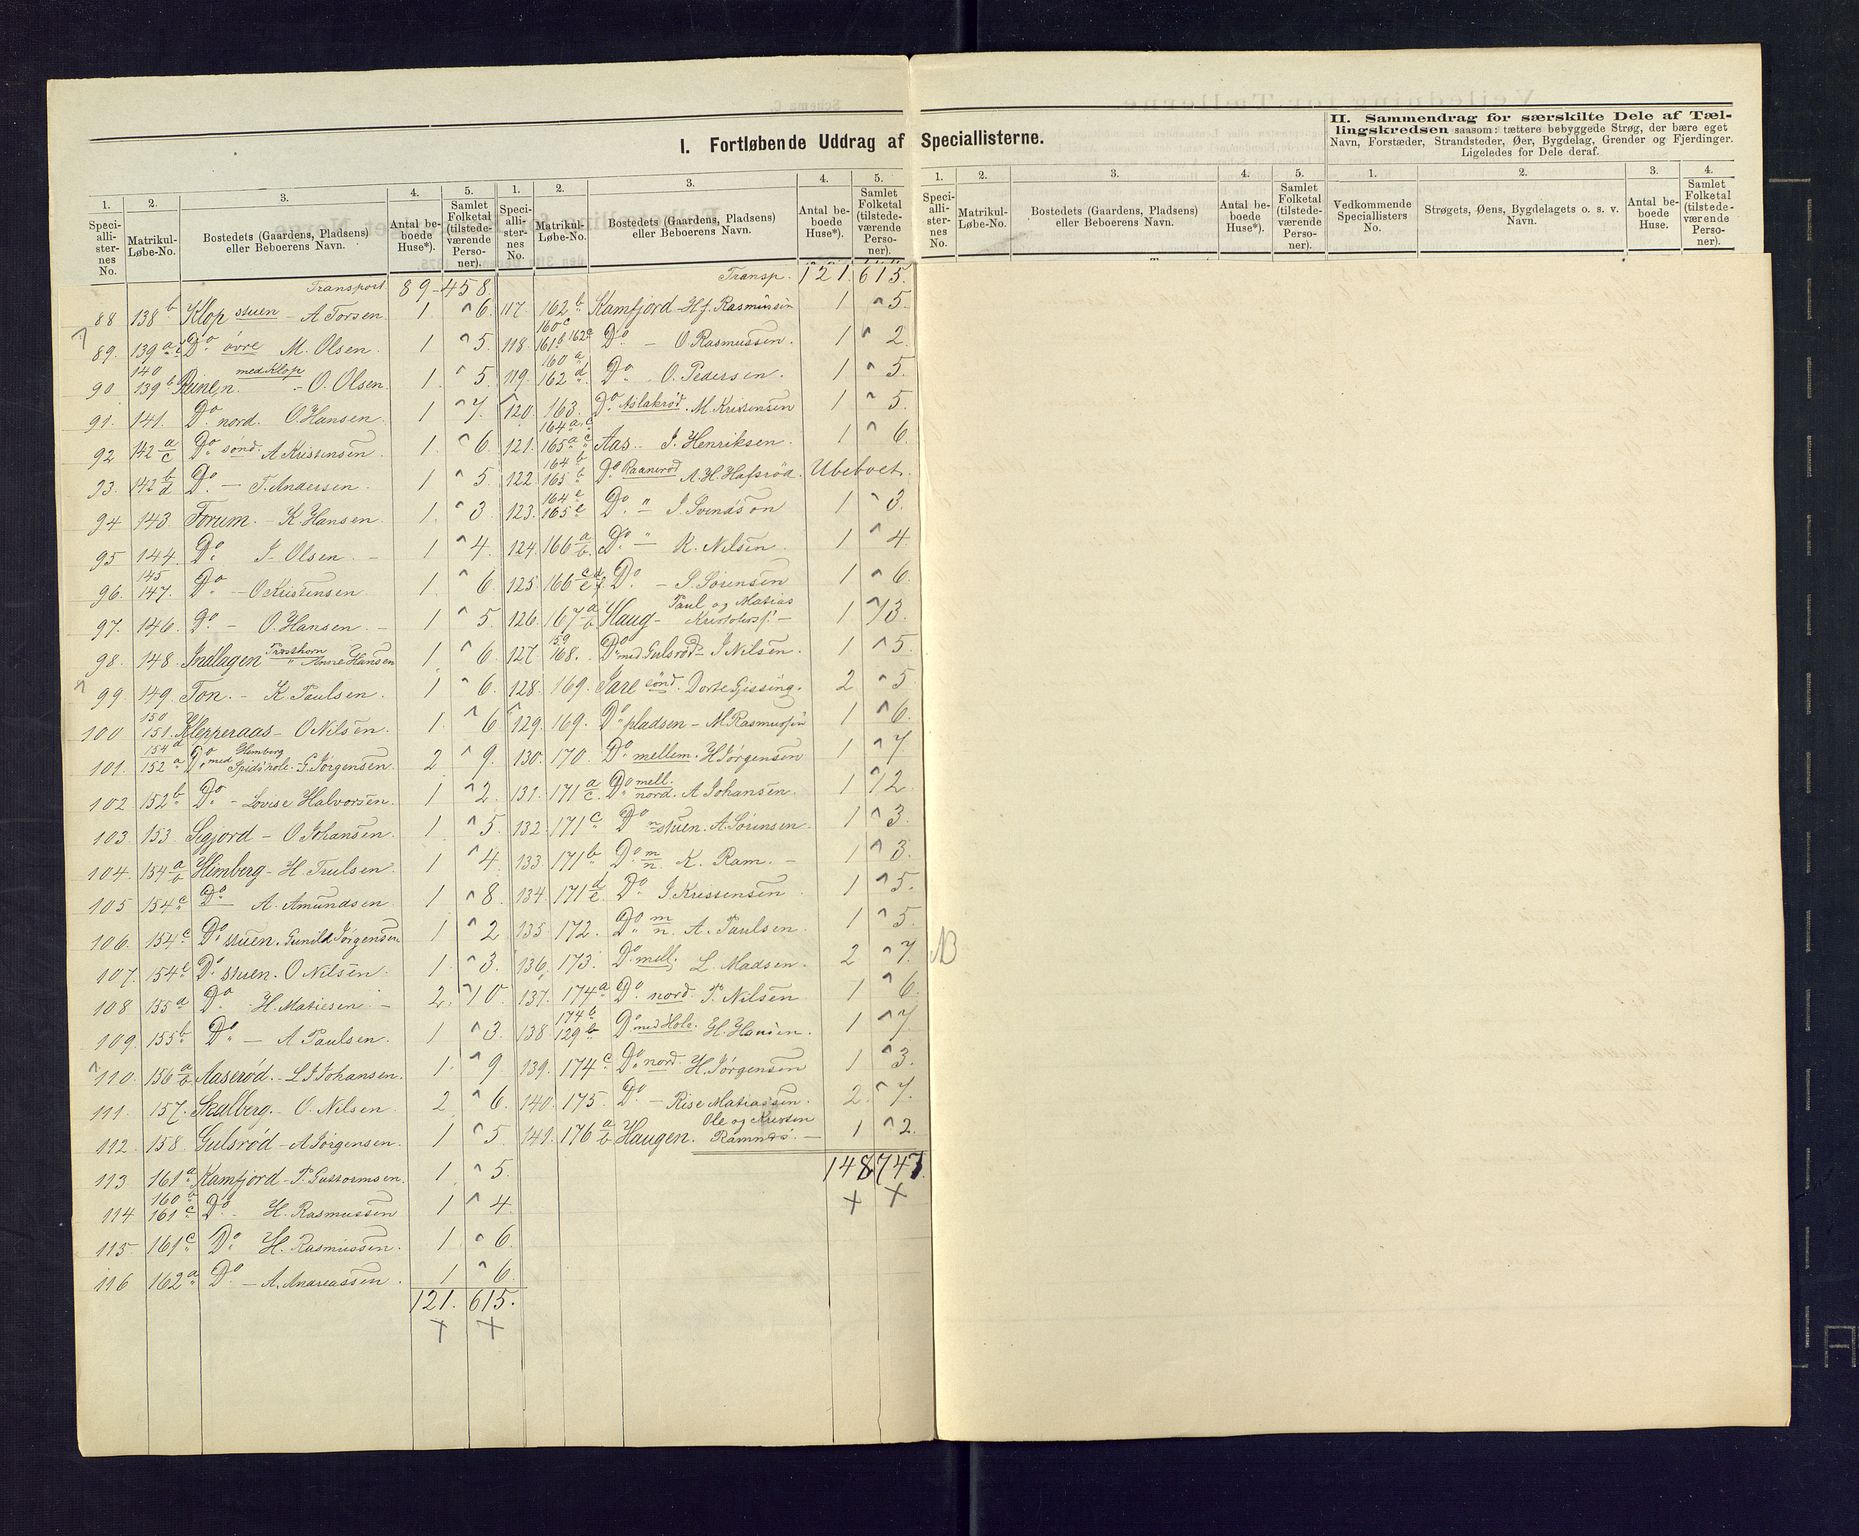 I. Fortløbende Uddrag af Speciallisterne.
II. Sammendrag for særskilte Dele af Tæl-
lingskredsen saasom: tættere bebyggede Strøg, der bære eget
Navn, Forstæder, Strandsteder, Øer, Bygdelag, Grender og Fjerdinger.
Ligeledes for Dele deraf.
1. Speciallisternes No. 2. Matrikul-Løbe-No. 3. Bostedets (Gaardens, Pladsens) eller Beboerens Navn. 4. Antal beboede Huse*). 5. Samlet Folketal (tilstedeværende Personer).
Transport 89 - 458.
88 138 b Klop stuen - A Torsen 1 6
89. 139 a Do øvre M. Olsen. 1 5.
90 140 139 b med Klop - O. Olsen 1. 5
91. 141. Do nord. O. Hansen. 1 7.
92 142 a/c Do sønd. A Kristensen 1. 6
93. 142 b/d Do - T. Andersen. 1 5
94 143. Forum. - K. Hansen. 1. 3
95 144. Do J. Olsen. - 1 4.
96. 145 147. Do - O Kristensen 1 6
97. 146. Do - O. Hansen. - 1 5.
98. 148. Indlagen Anne Hansen 1. 6
99. 149. Ton. - K. Paulsen. 1 6.
100 150 151. Klepperaas - O Nilsen. 1. 6
101. 154 d 152 a Do med Himberg Spidshole. G. Jørgensen. 2 9.
102 152 b Do - Lovise Halvorsen. 1 2
103. 153 Sgjord - O Johansen. 1. 5
104. 154 a/b Himberg - H Trulsen. 1 4
105 154 c Do - A. Amundsen. 1 8
106. 154 c Do stuen. Gunild Jørgensen 1 2
107. 154 e Do stuen. O Nilsen. 1. 3.
108 155 a Do H. Matiesen - 2. 10.
109. 155 b Do - A Paulsen. 1 3
110. 156 a/b Aaserød. - L J Johansen. 1. 9
111. 157. Skalberg. - O. Nilsen. 2 6.
112. 158. Gulsrød - A Jørgensen. 1 5
113 161 a Kamfjord - P. Guttormsen. 1 5.
114 160 b 161 c Do H. Rasmussen 1 4.
115. 161 c Do H. Rasmussen. 1 6
116 162 a Do - A. Andreassen. 1 6
121. 615.
Transp. 121. 615.
117. 162 b Kamfjord - H f. Rasmussen 1 5.
118. 160 c 161 b 162 c Do - O Rasmussen. 1 2.
119. 160 a 162 d Do O. Pedersen. 1 5.
120. 163. Do Aslakrød. M. Kristensen 1 5.
121. 164 a c 165 a c Aas. J. Henriksen. 1 6.
122. 164 b 165 b Do Raanerød A. H. Hafsrød. Ubeboet.
123. 164 e 165 e Do " J. Svendson 1 3.
124. 166 a/b Do " K. Nilsen. 1 4.
125. 166 Do - S. Sørensen 1 6.
126. 167 a/b Haug - Paul og Matias Kristofersf. - 1 13.
127. 159 168. Do med Gulsrød - J Nilsen. 1 5.
128. 169. Sare sønd. Dorte Gissing. 2 5.
129. 169. Do pladsen - M. Rasmussen 1 6.
130. 170. Do mellem. H Jørgensen 1 7
131. 171 a/c Do mell. nord. A Johansen. 1 12.
132. 171 c Do n stuen. A. Sørensen. 1 3.
133. 171 b Do m/n. K. Ram. - 1 3.
134. 171 d/e Do J. Kristensen 1 5.
135. 172. Do m/n. A. Paulsen. 1 5.
136. 173. Do mell. L. Madsen. 2 7. NB
137. 174 a Do nord. P. Nilsen 1 6.
138 174 b 129 b Do med Hole. H. Hansen. 1 7
139. 174 c Do nord. H. Jørgensen 1 3.
140. 175. Do - Rise Matiassen. 2. 7.
141. 176 a/b Haugen. Ole og Kristen Ramnæs. - 1 2.
148 747.
1. Speciallisternes No. 2. Matrikul-Løbe-No. 3. Bostedets (Gaardens, Pladsens) eller Beboerens Navn. 4. Antal beboede Huse*). 5. Samlet Folketal (tilstedeværende Personer).
1. Vedkommende Speciallisters No. 2. Strøgets, Øens, Bygdelagets o. s. v. Navn. 3. Antal beboede Huse. 4. Samlet Folketal (tilstedeværende Personer).